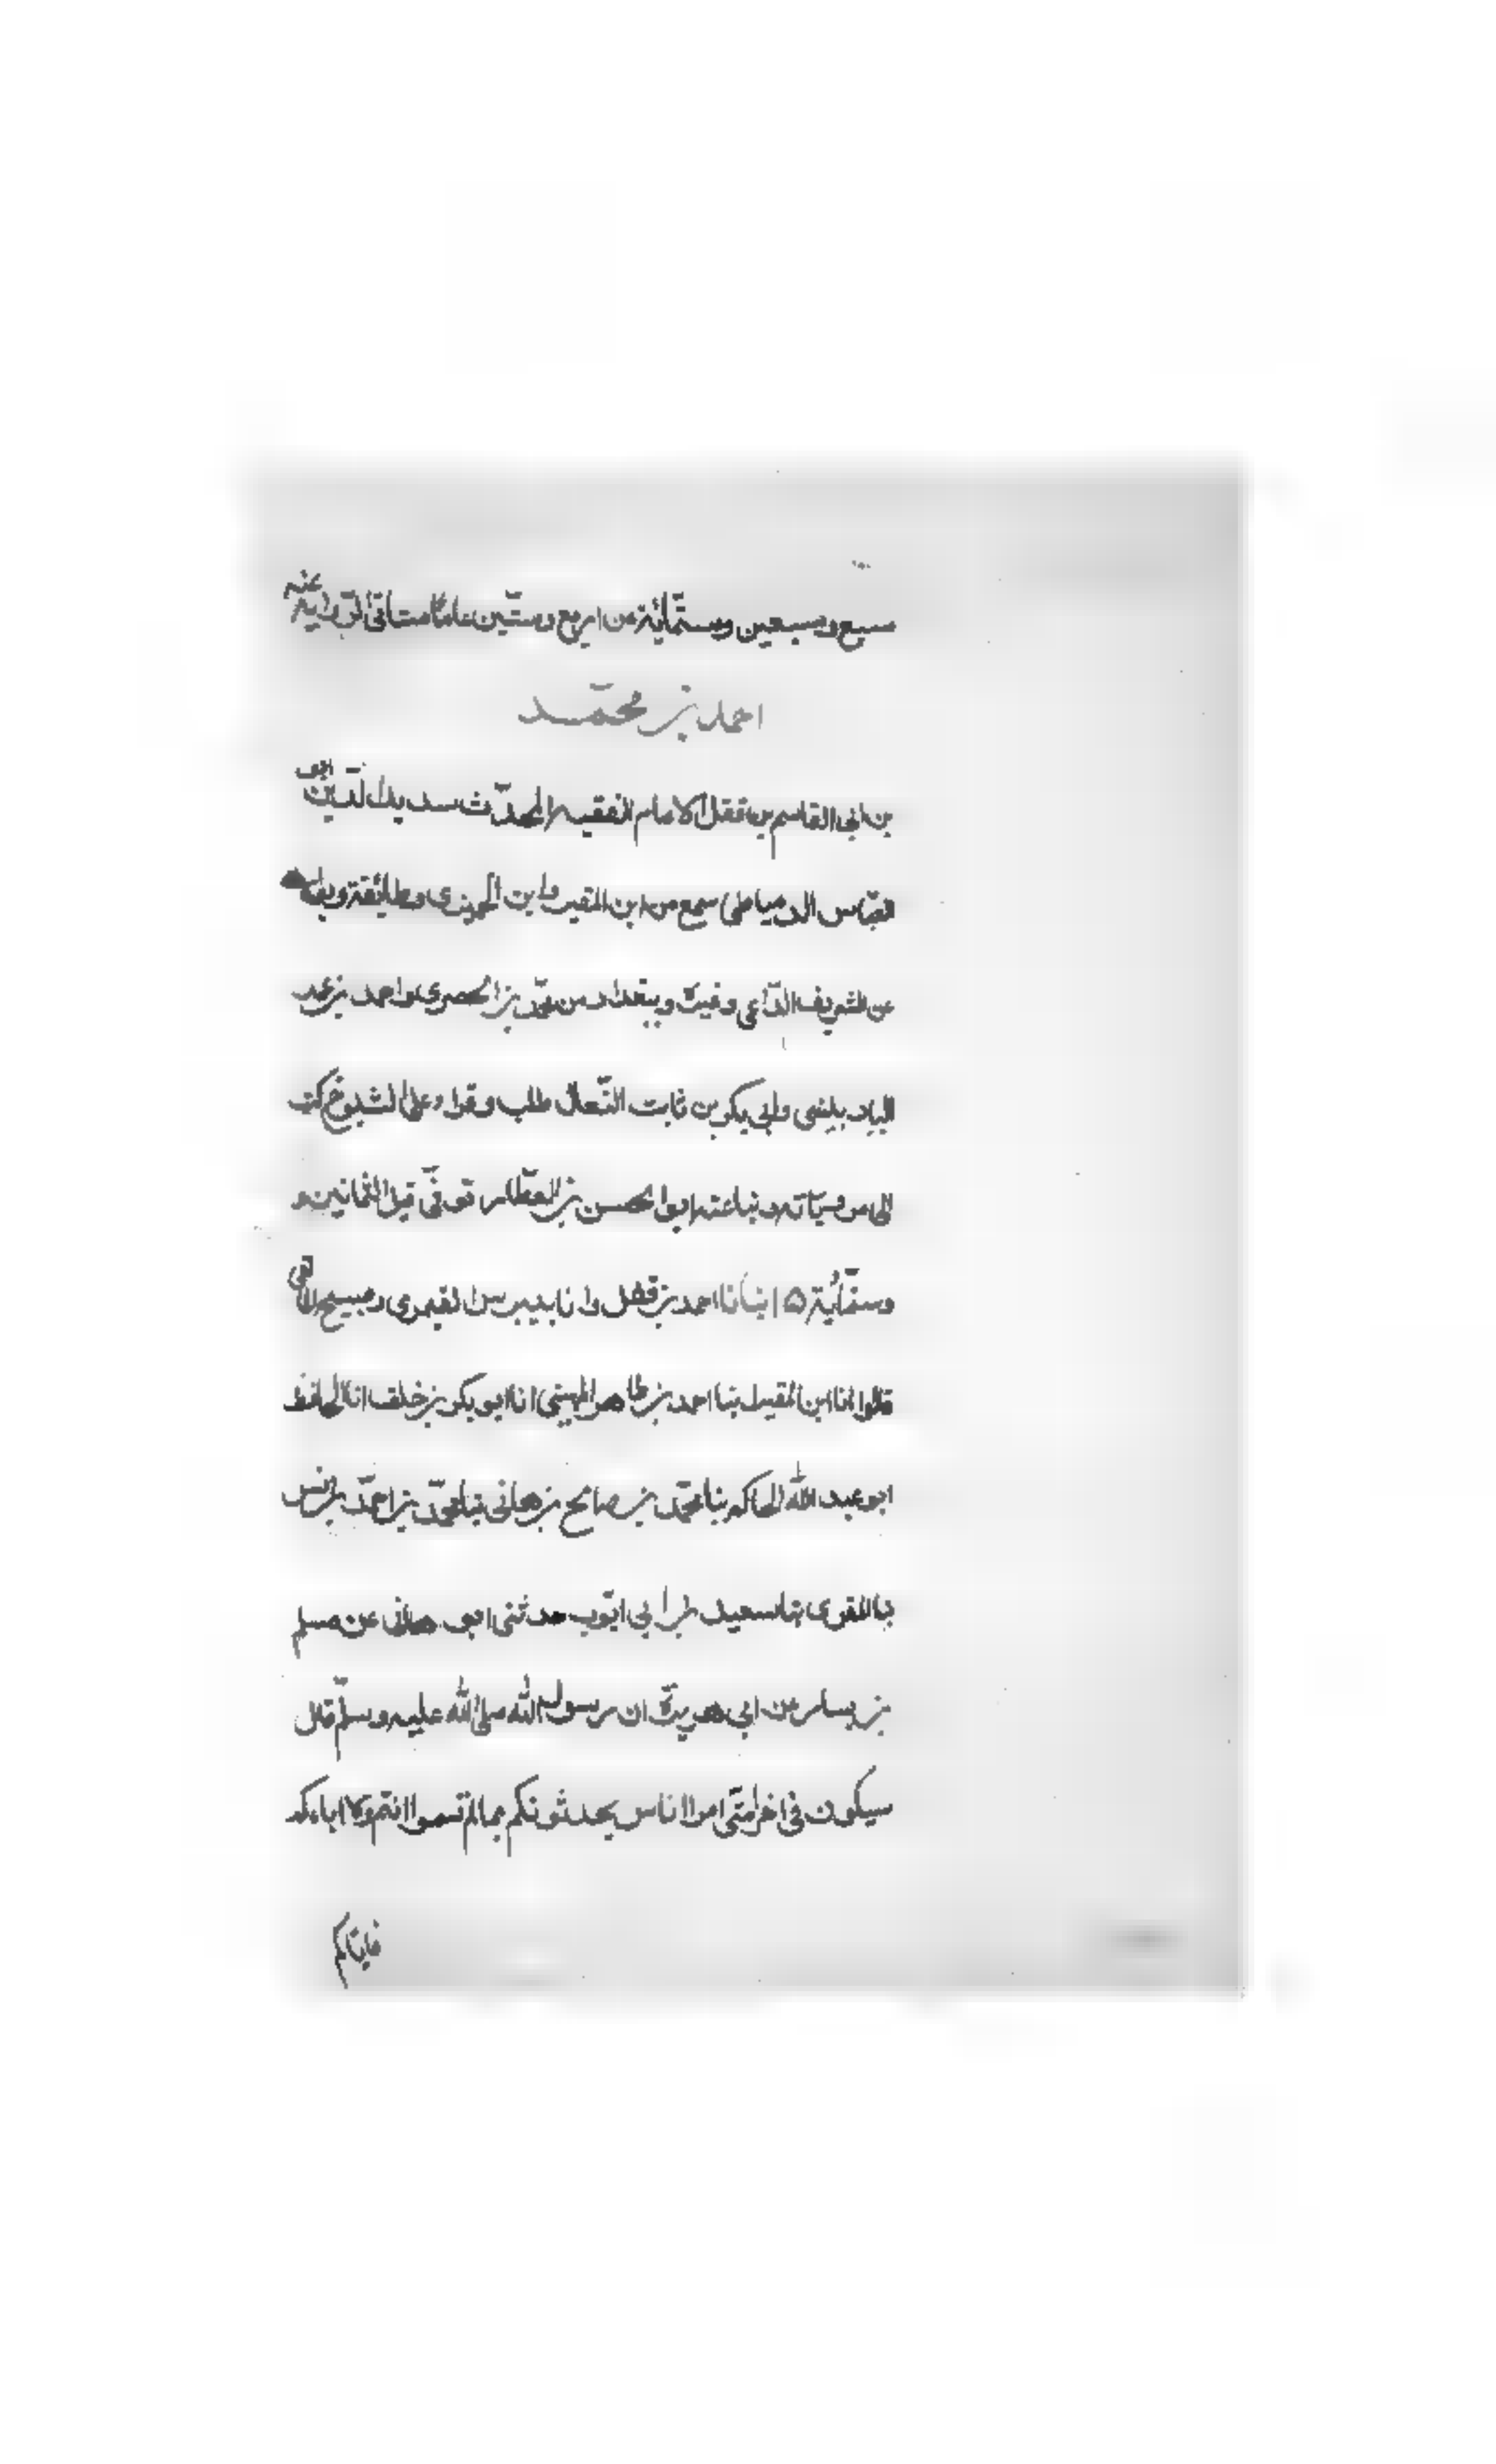 سبع وسبعين وستمائة من اربع وستين عاما ستاتي الرواية عنه
احمد بن محمد
بن ابي القاسم بن قفل الامام الفقيه المحدث سديد الدين ابو
العباس الدمياطي سمع من ابن المقير وابن الجميزي وطائفة
عن الشريف الداعي وغيره وببغداد من محمد بن الحصري واحمد بن محمد
وابي بكر بن ثابت النعال طلب وقرا على الشيوخ كتب
الي من وسيأته ونباعنه ابو الحسن بن العطار توفي قبل الثمانين و
وستمائة ۵ انبانا احمد بن قفل وانا بيبرس القيمري
قالوا انا ابن المقير نبا احمد بن طاهر الميهني انا ابو بكر بن خلف انا الحافظ
ابو عبد الله الحاكم نبا محمد بن صالح بن هاني نبا محمد بن احمد بن انس
نبا المقرى نبا سعيد بن ابي ايوب حدثني ابو هاني عن مسلم
بن يسار عن ابي هريرة ان رسول الله صلى الله عليه وسلم قال
سيكون في اخر امتي اموا اناس يحدثونكم بما لم تسمعوا انتم ولا اباءكم
فاياكم